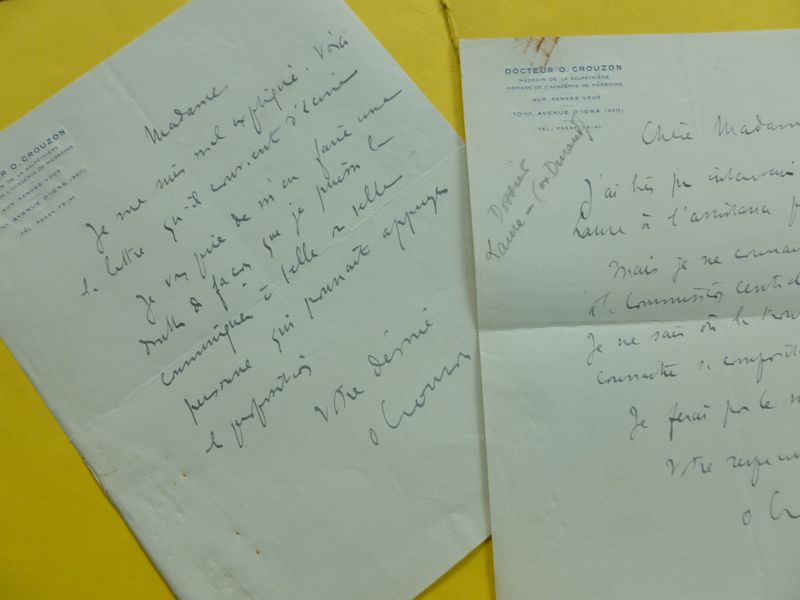 R O. CROUZON
DE LA SALPETRIÈRE
L'ACADÉMIE DE MÉDECINE
SUR RENDEZ-VOUS
AVENUE D'IÉNA (XVIE)
TÉL: PASSY
Madame
Je me suis mal expliqué. Voici
la lettre qu'il convient d'écrire
Je vous prie de m'en faire une
double de façon que je puisse la
communiquer à telle ou telle
personne qui pourrait appuyer
la proposition
Votre dévoué
O Crouzon
DOCTEUR O. CROUZON
MÉDECIN DE LA SALPETRIÈRE
MEMBRE DE L'ACADÉMIE DE MÉDECINE
SUR RENDEZ-VOUS
70 BIS, AVENUE D'IÉNA (XVIE)
TÉL: PASSY
Dossier
Laure - (ex Durand)
Chère Madame
J'ai très pu intervenir
Laure à l'assistance
Mais je ne connais
à la Commission centrale
Je ne sais où la trouver
connaitre sa composition
Je ferai par le
Votre
O Cr